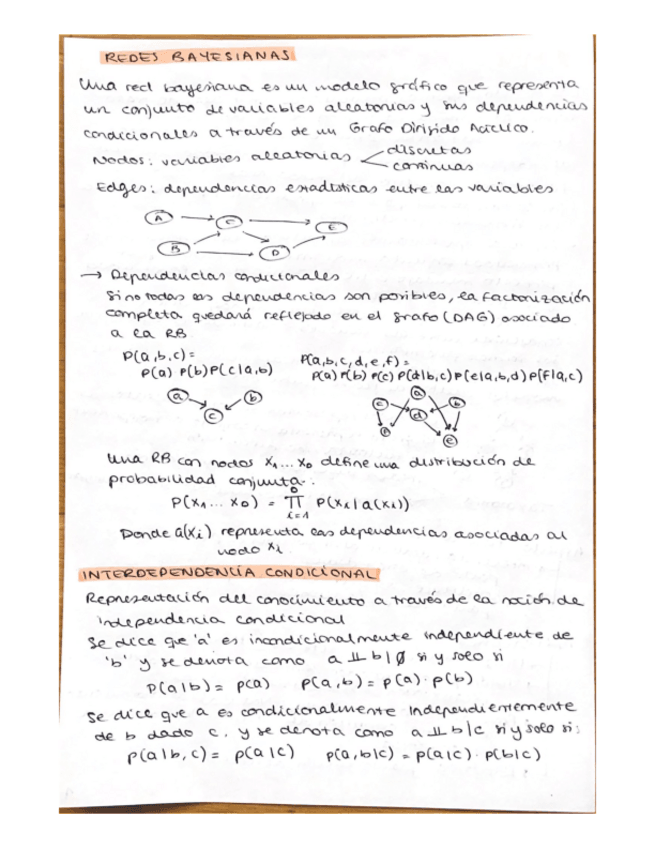 REDES BAYESIANAS
Una red bayesiana es un modelo gráfico que representa
un conjunto de variables aleatorias y sus dependencias
condicionales a través de un Grafo Dirigido Acíclico.
Nodos: variables aleatorias discretas
continuas
Edges: dependencias estadísticas entre las variables
A C E
B D
→ Dependencias condicionales
Si no todas las dependencias son posibles, la factorización
completa quedará reflejado en el grafo (DAG) asociado
a la RB
P(a,b,c) = P(a,b,c,d,e,f) =
P(a) P(b) P(c|a,b) P(a) P(b) P(c) P(d|b,c) P(e|a,b,d) P(f|a,c)
a b c a b
c d
e
Una RB con nodos x₁...x₀ define una distribución de
probabilidad conjunta.
P(x₁...x₀) = ∏ᵢ₌₁⁰ P(xᵢ|a(xᵢ))
Donde a(xᵢ) representa las dependencias asociadas al
nodo xᵢ
INTERDEPENDENCIA CONDICIONAL
Representación del conocimiento a través de la noción de
independencia condicional
Se dice que 'a' es incondicionalmente independiente de
'b' y se denota como a ⫫ b|∅ si y solo si
P(a|b) = P(a) P(a,b) = p(a)·p(b)
Se dice que a es condicionalmente independientemente
de b dado c, y se denota como a ⫫ b|c si y solo si:
P(a|b,c) = p(a|c) p(a,b|c) = p(a|c)·p(b|c)